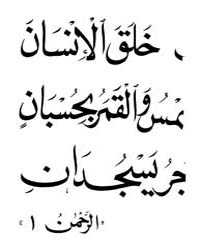 خَلَقَ الْإِنْسَانَ
مْسُ وَالْقَمَرُ بِحُسْبَانٍ
جَرُ يَسْجُدَانِ
«الرَّحْمٰنُ ١»